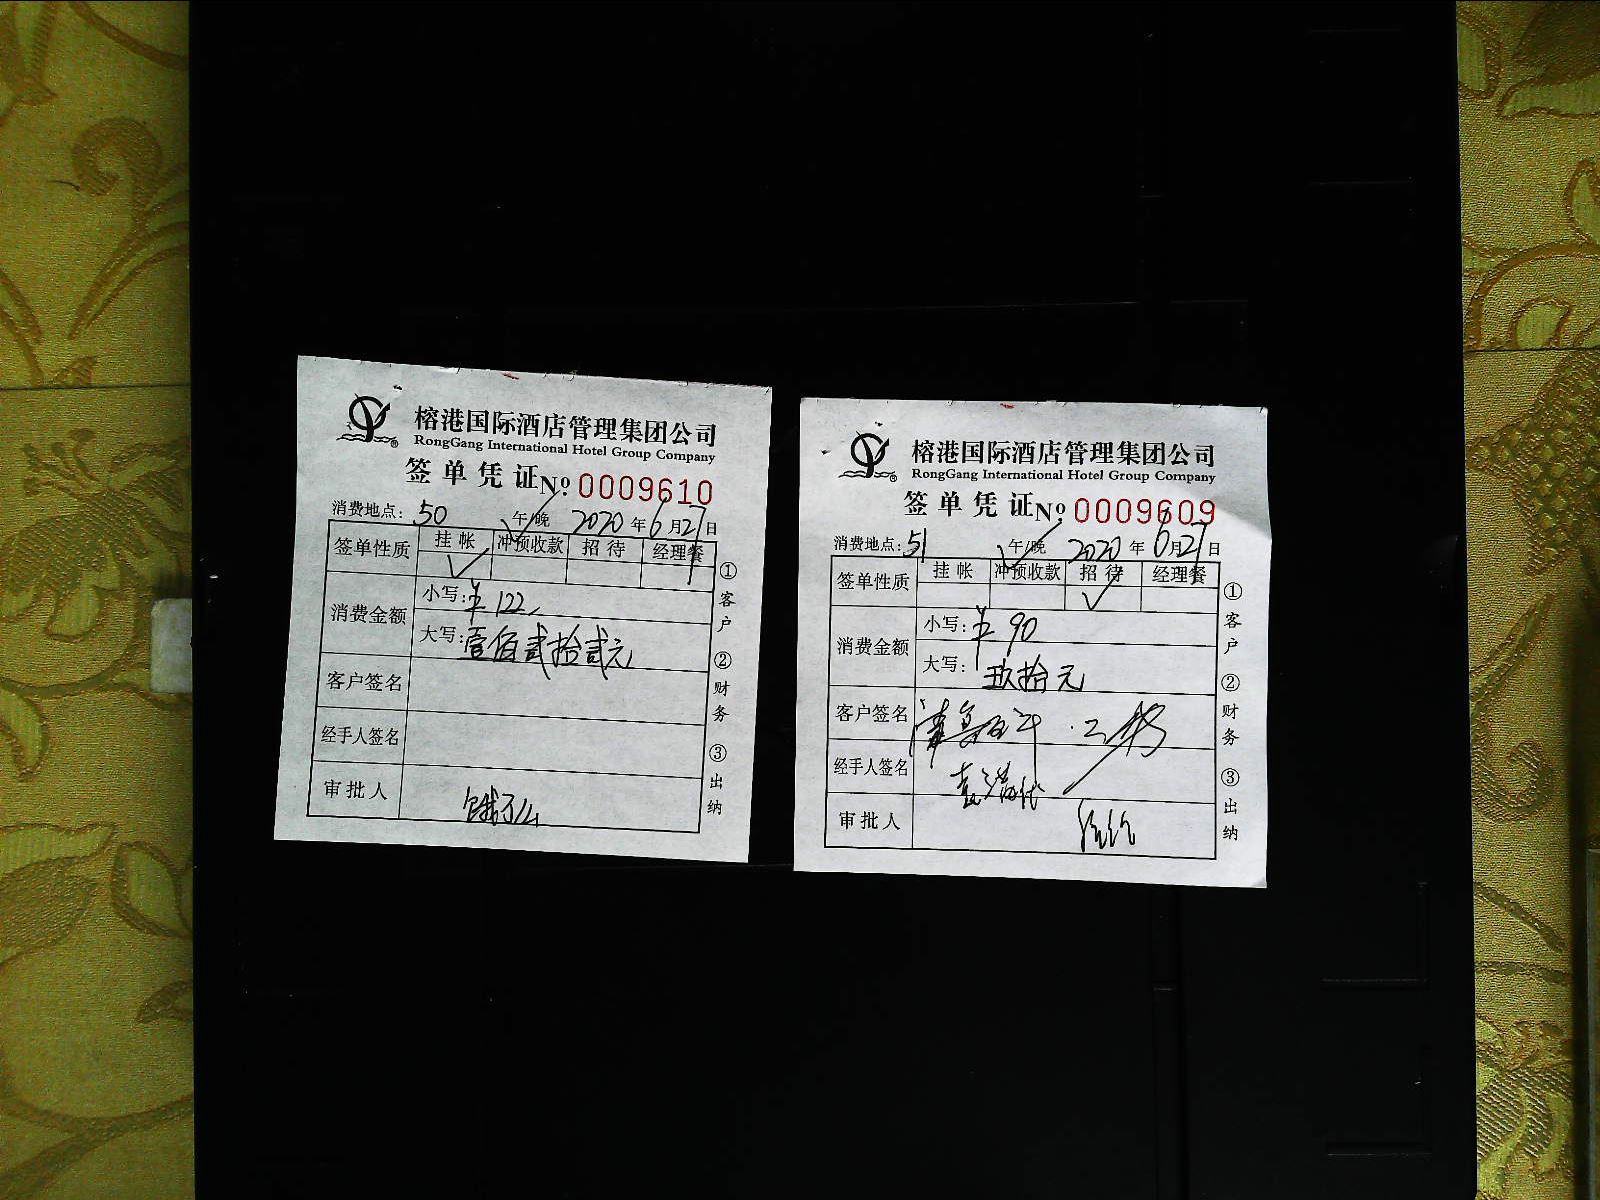 榕港国际酒店管理集团公司
RongGang International Hotel Group Company
签单凭证 No 0009610
消费地点: 50 午/晚 2020年6月27日
签单性质 挂帐 冲预收款 招待 经理餐
消费金额
小写: ¥122
大写: 壹佰贰拾贰元
客户签名
经手人签名
审批人 饿了么
①客户 ②财务 ③出纳
榕港国际酒店管理集团公司
RongGang International Hotel Group Company
签单凭证 No 0009609
消费地点: 51 午/晚 2020年6月27日
签单性质 挂帐 冲预收款 招待 经理餐
消费金额
小写: ¥90
大写: 玖拾元
客户签名
经手人签名
审批人
①客户 ②财务 ③出纳